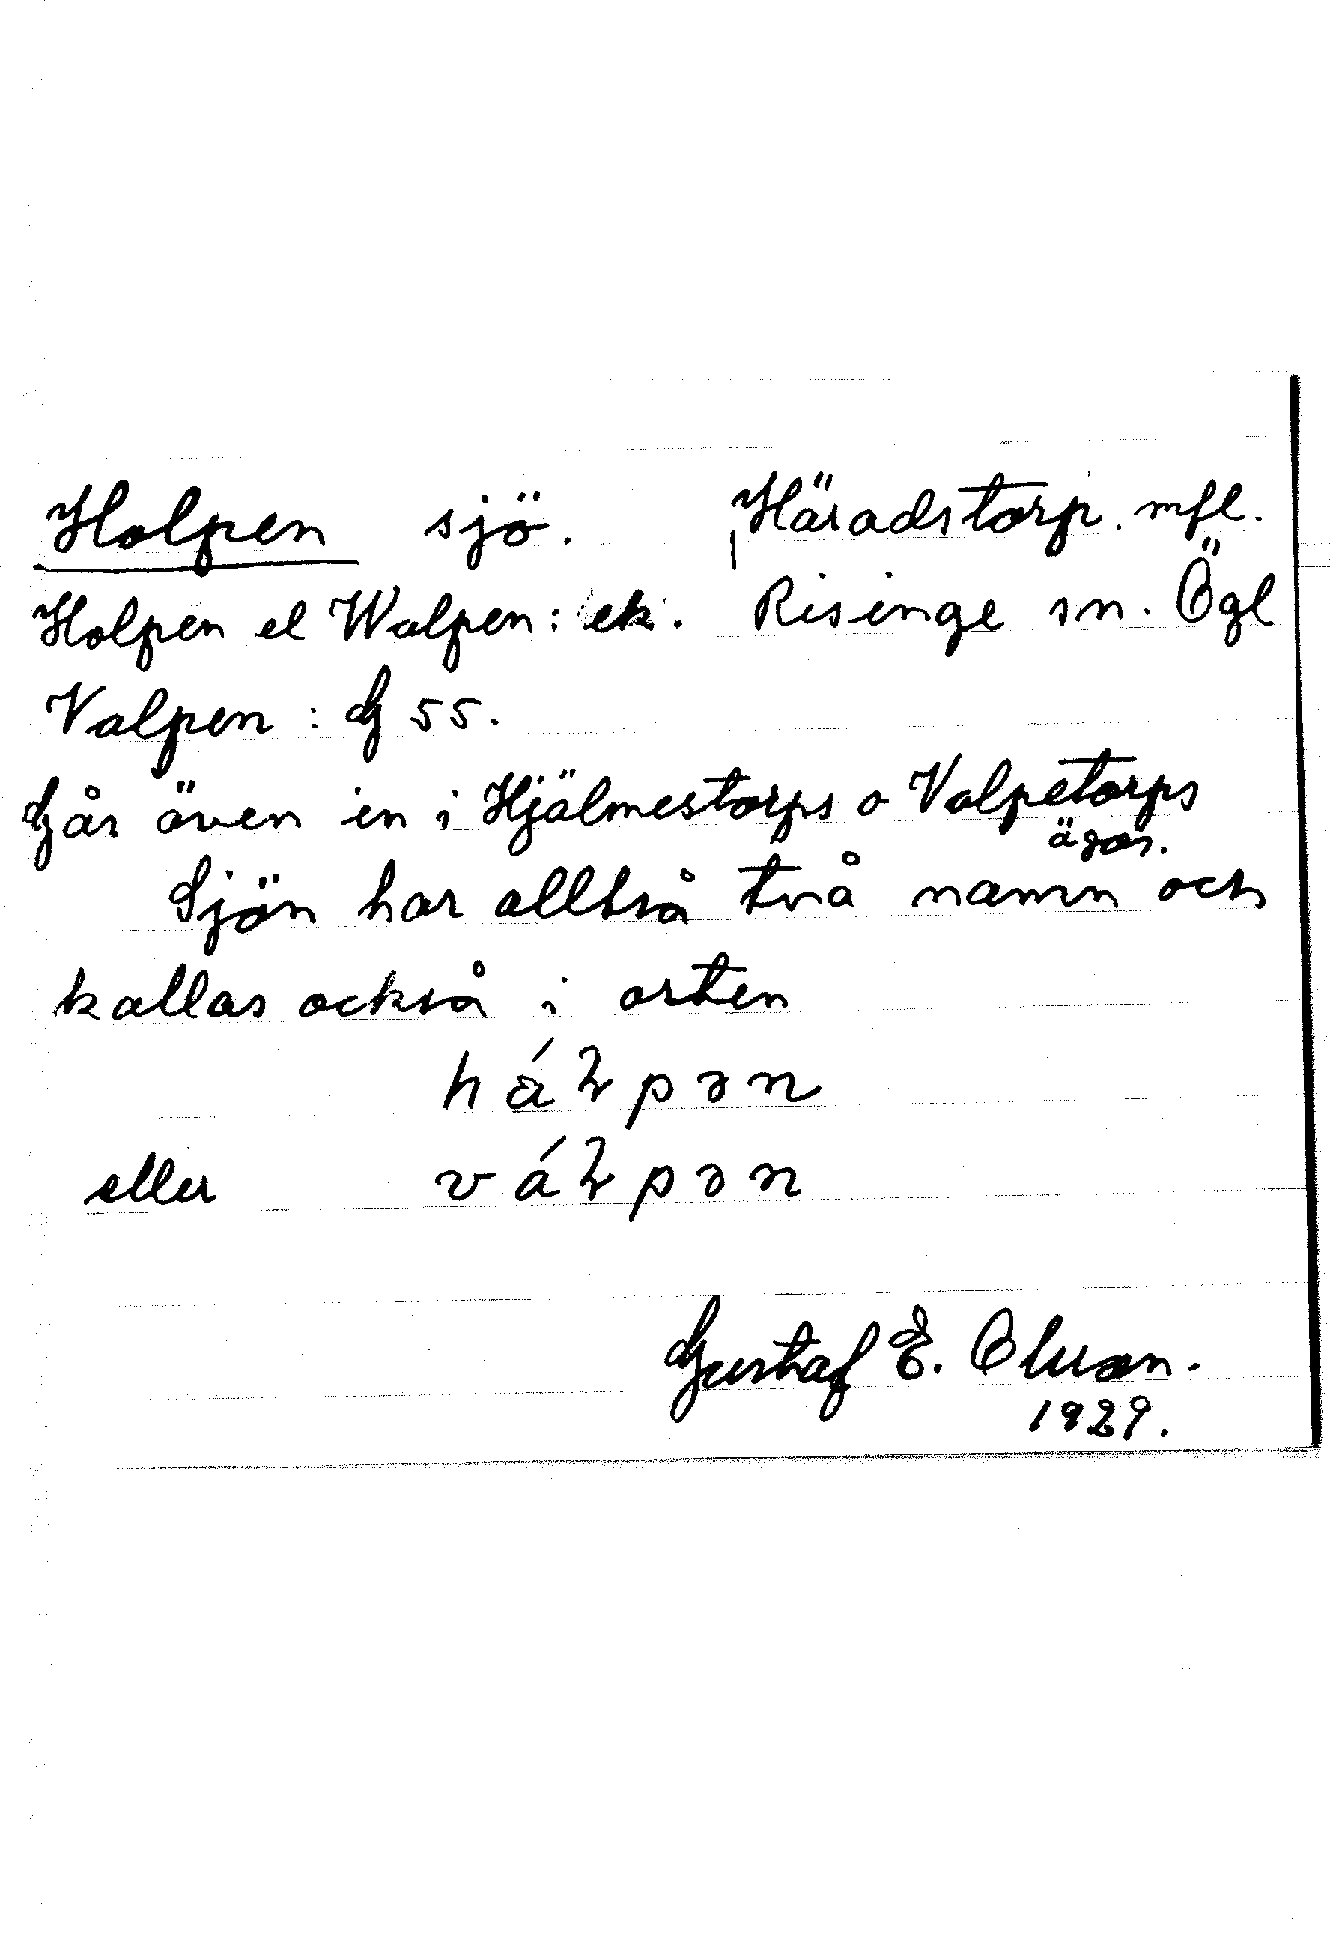 Holpen sjö. Häradstorp. mfl.
Holpen el Walpen: ek. Risinge sn. Ögl
Valpen: G 55.
Går även in i Hjälmestorps o Valpetorps
ägor.
Sjön har alltså två namn och
kallas också i orten
hálpən
eller válpən
Gustaf E. Oluson.
1929.